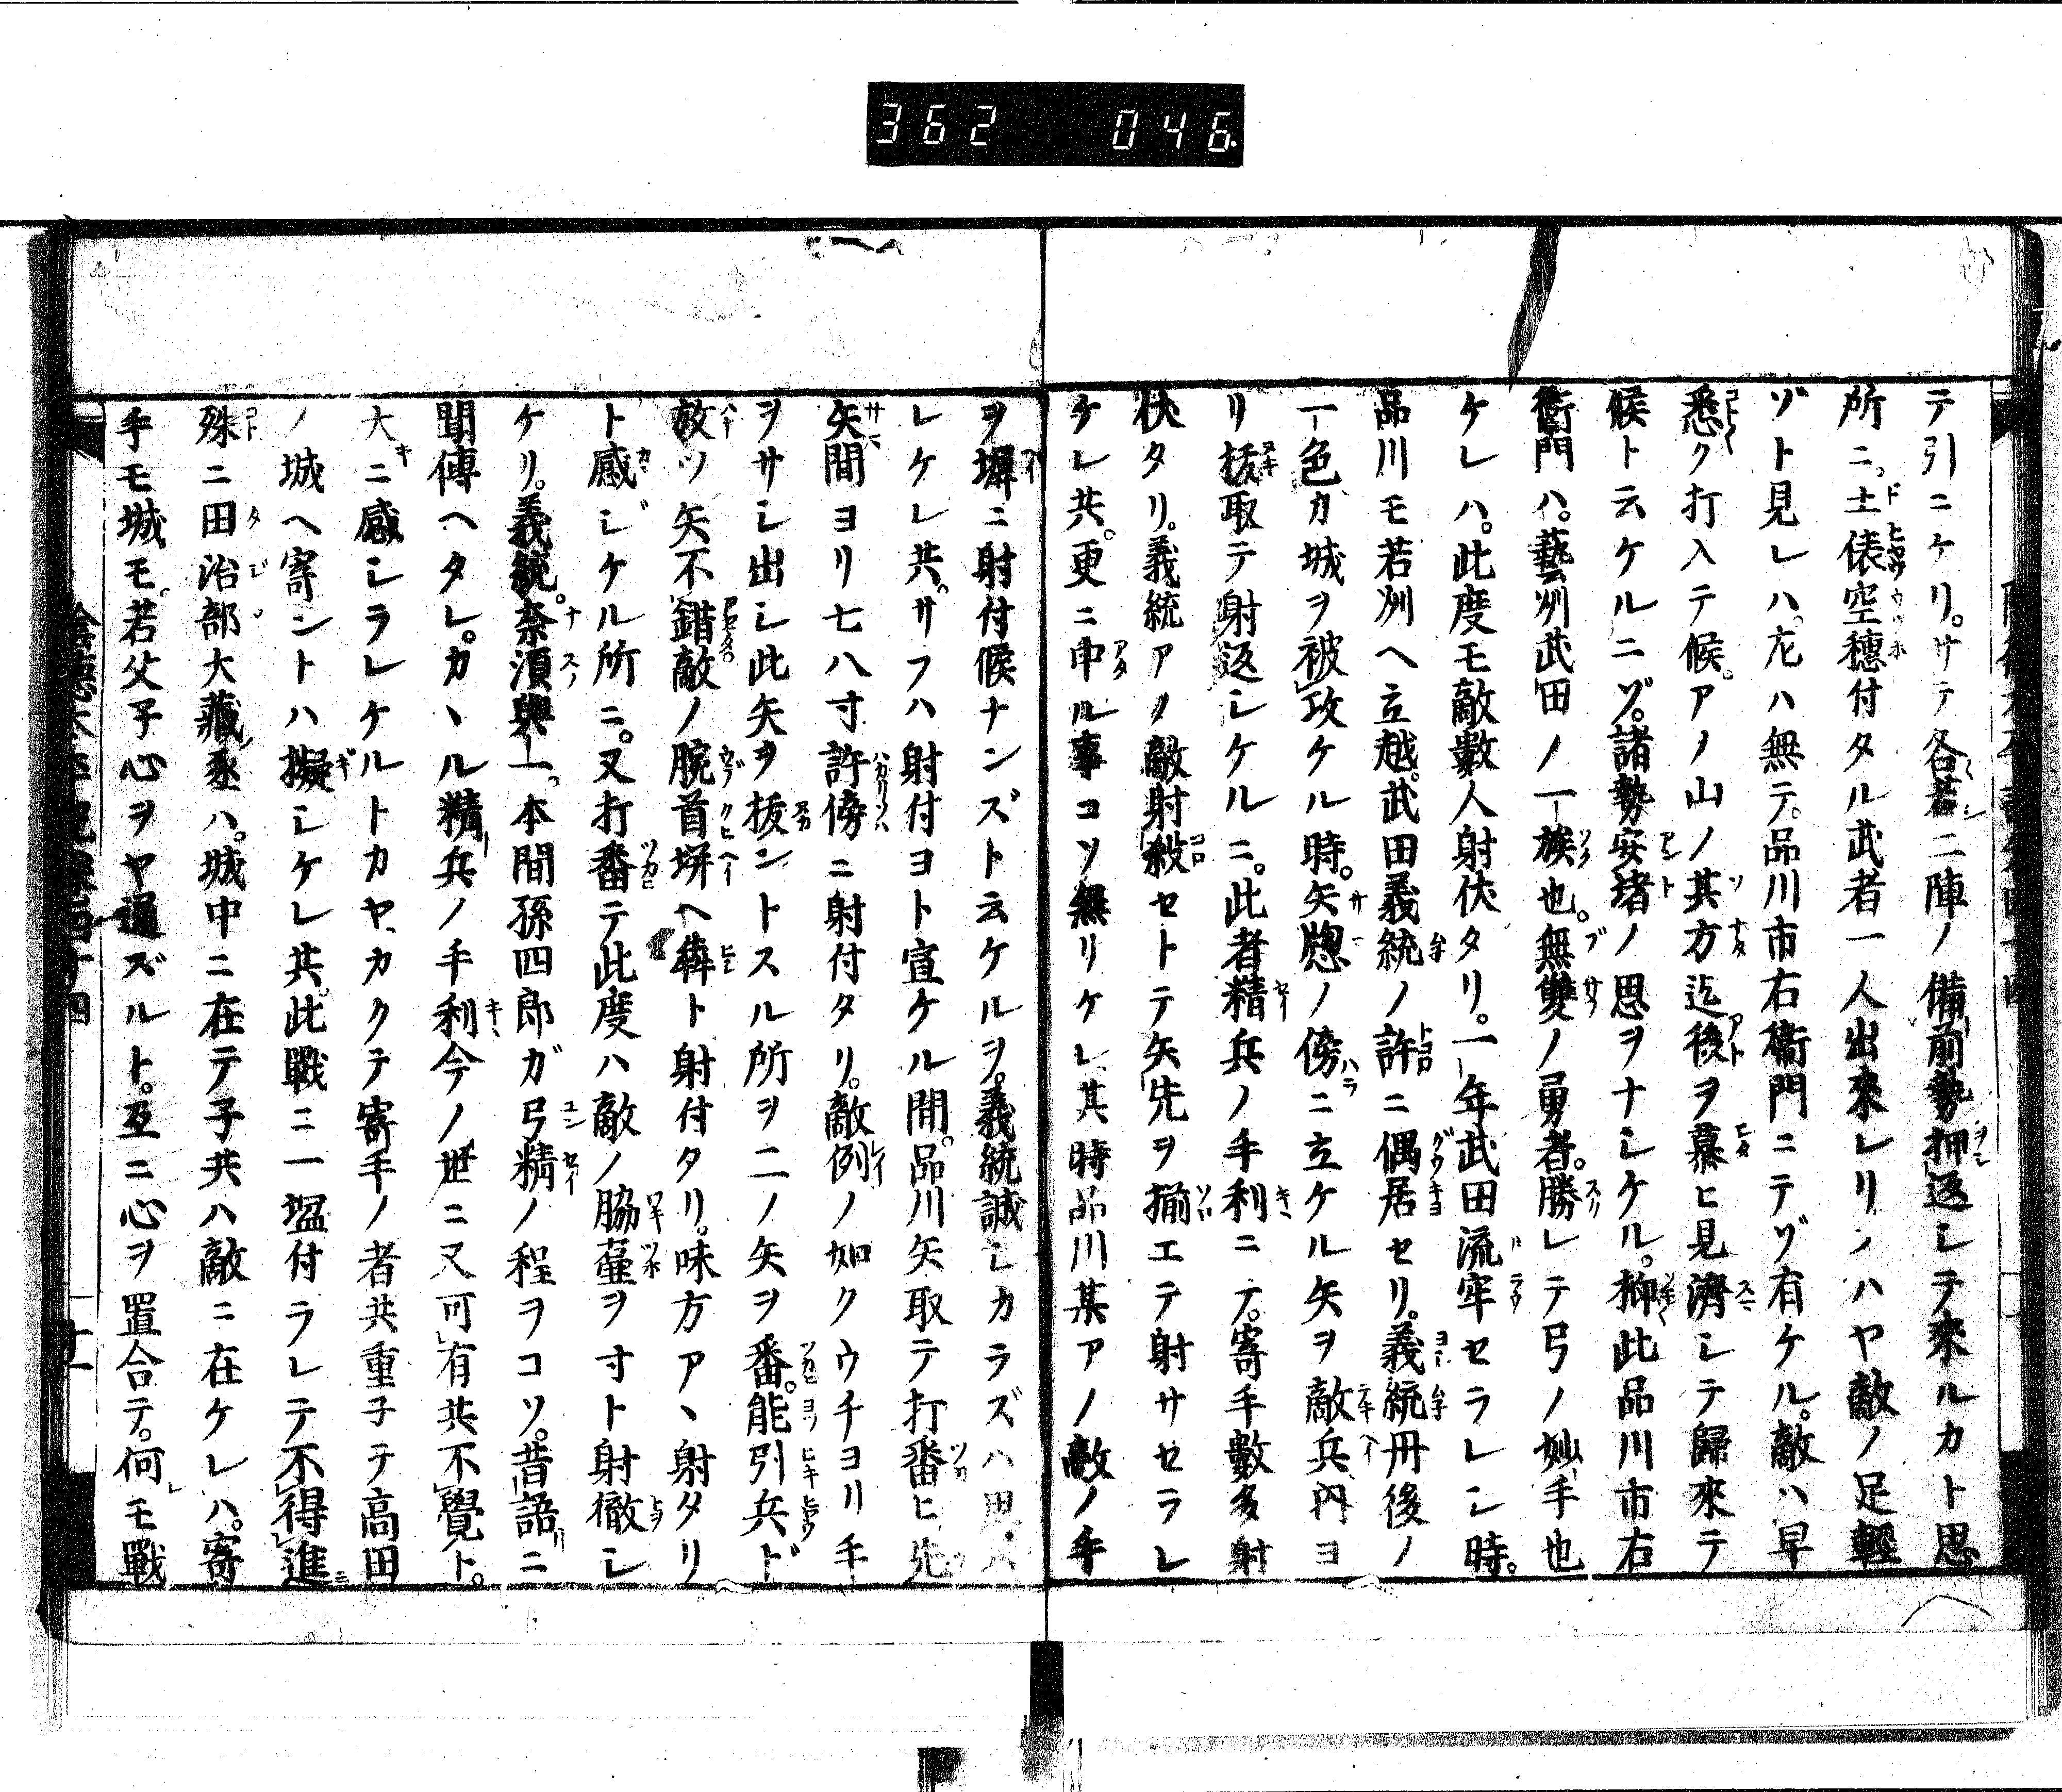 362 046
テ引ニケリ。サテ各若二陣ノ備前勢押返シテ來ルカト思
所ニ。土俵空穗付タル武者一人出來レリ。ハヤ敵ノ足輕
ゾト見レハ。尤ハ無テ。品川市右衞門ニテゾ有ケル。敵ハ早
悉ク打入テ候。アノ山ノ其方迄後ヲ慕ヒ見濟シテ歸來テ
候ト云ケルニゾ。諸勢安堵ノ思ヲナシケル。抑此品川市右
衞門ハ。藝州武田ノ一族也。無雙ノ勇者。勝レテ弓ノ妙手也
ケレハ。此度モ敵數人射伏タリ。一年武田流牢セラレシ時。
品川モ若州ヘ立越。武田義統ノ許ニ偶居セリ。義統丹後ノ
一色カ城ヲ被攻ケル時。矢牕ノ傍ニ立ケル矢ヲ敵兵内ヨ
リ抜取テ射返シケルニ。此者精兵ノ手利ニテ。寄手數多射
伏タリ。義統アノ敵射殺セトテ矢先ヲ揃エテ射サセラレ
ケレ共。更ニ中ル事コソ無リケレ其時品川某アノ敵ノ手
ヲ塀ニ射付候ナンズト云ケルヲ。義統誠シカラズハ思
レケレ共。サラハ射付ヨト宣ケル間。品川矢取テ打番ヒ先
矢間ヨリ七八寸許傍ニ射付タリ。敵例ノ如クウチヨリ手
ヲサシ出シ此矢ヲ抜ントスル所ヲ二ノ矢ヲ番。能引兵ド
放ツ矢不錯敵ノ腕首塀ヘ犇ト射付タリ。味方アヽ射タリ
ト感ジケル所ニ。又打番テ此度ハ敵ノ脇壺ヲ寸ト射徹シ
ケリ。義統。奈須與一。本間孫四郎ガ弓精ノ程ヲコソ。昔語ニ
聞傳ヘタレ。カヽル精兵ノ手利今ノ世ニ又可有共不覺ト。
大ニ感シラレケルトカヤ。カクテ寄手ノ者共重子テ高田
ノ城ヘ寄ントハ擬シケレ共。此戰ニ一塩付ラレテ不得進
殊ニ田治部大藏丞ハ。城中ニ在テ子共ハ敵ニ在ケレハ。寄
手モ城モ。若父子心ヲヤ通ズルト。互ニ心ヲ置合テ。何モ戰